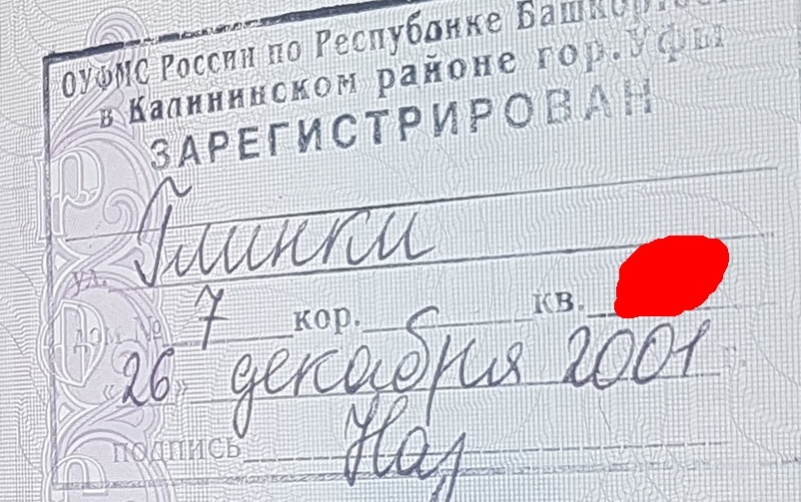 ОУФМС России по Республике Башкортост
в Калининском районе гор.Уфы
ЗАРЕГИСТРИРОВАН
ул. Глинки
дом № 7 кор. кв.
«26» декабря 2001 г.
подпись